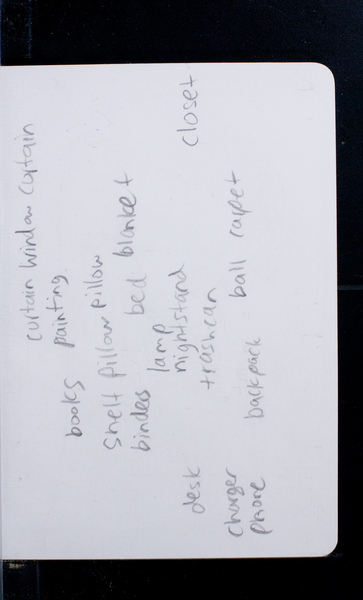 curtain window curtain
books painting
shelf pillow pillow
binders bed blanket
lamp
nightstand closet
desk trashcan
charger backpack ball carpet
phone